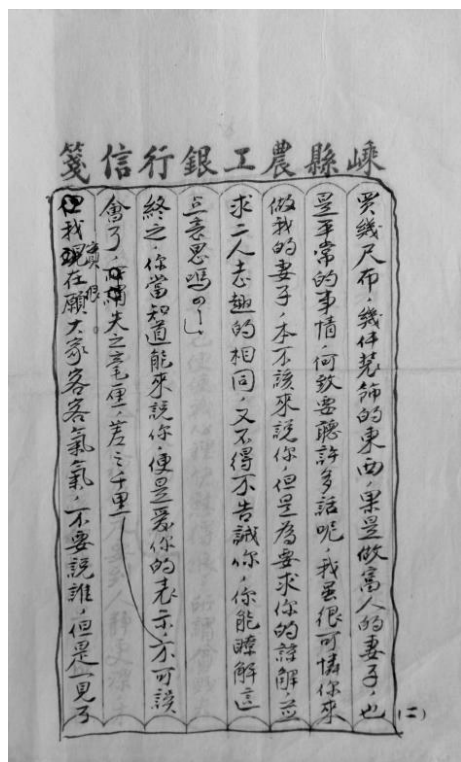 嵊縣農工銀行信箋
(二)
買幾尺布，幾件裝飾的東西，果是做富人的妻子，也
是平常的事情，何致要聽許多話呢，我虽很可憐你來
做我的妻子，本不該來說你，但是為要求你的諒解，並
求二人志趣的相同，又不得不告誡你，你能瞭解這
点意思嗎？」，
終之，你當知道能來說你，便是愛你的表示，不可誤
會了，所謂失之毫厘，差之千里
但我現在願大家客客氣氣，不要說誰，但是一見了